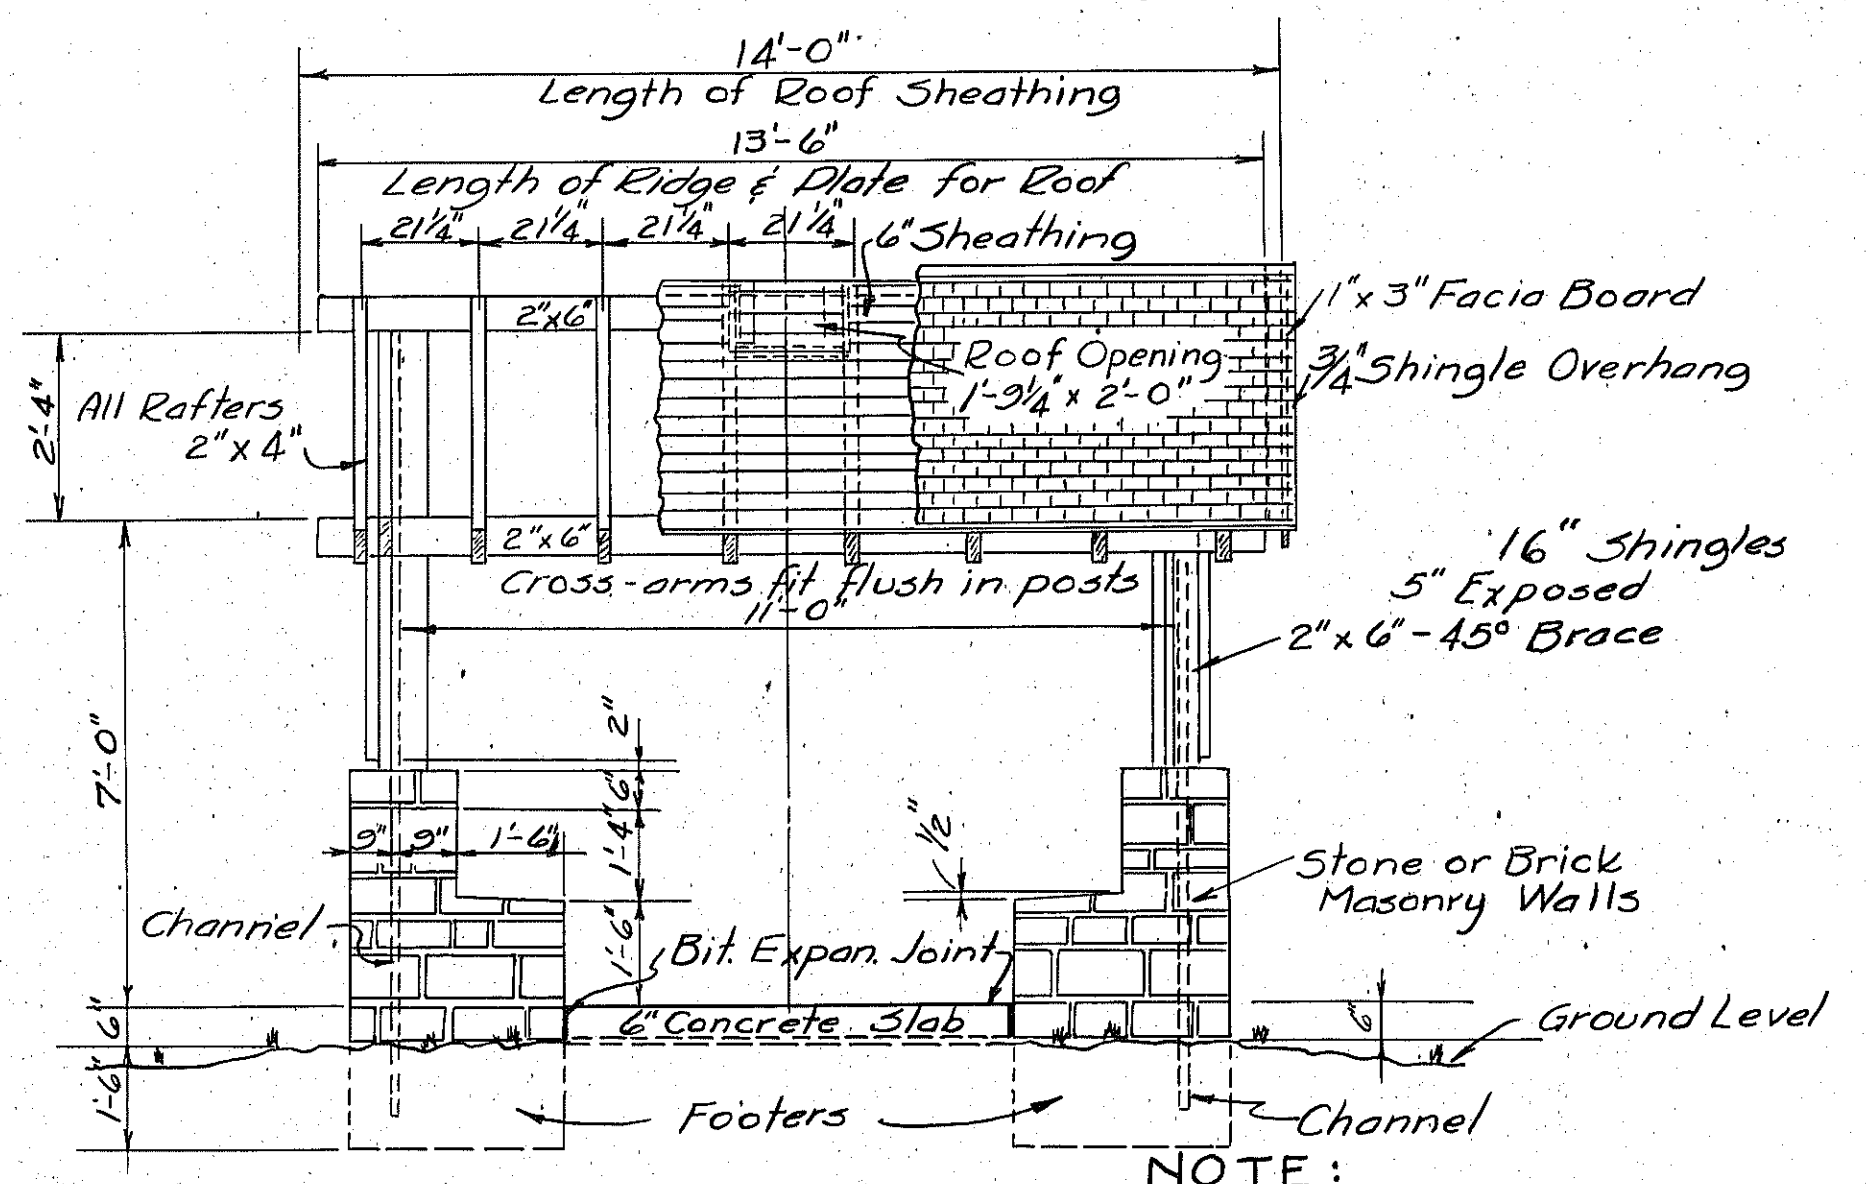 14'-0"
Length of Roof Sheathing
13'-6"
Length of Ridge & Plate for Roof
21 1/4" 21 1/4" 21 1/4" 21 1/4"
6" Sheathing
2"x6"
1"x 3" Facia Board
Roof Opening
1'-9 1/4" x 2'-0"
3/4" Shingle Overhang
2'-4"
All Rafters
2"x 4"
2"x6"
16" Shingles
5" Exposed
Cross-arms fit flush in posts
11'-0"
2"x 6"-45° Brace
7'-0"
2"
6"
9" 9" 1'-6"
1'-4"
1/2"
Stone or Brick
Masonry Walls
Channel
1'-6"
Bit. Expan. Joint
6"
6" Concrete Slab
6"
Ground Level
1'-6"
Footers
Channel
NOTE: